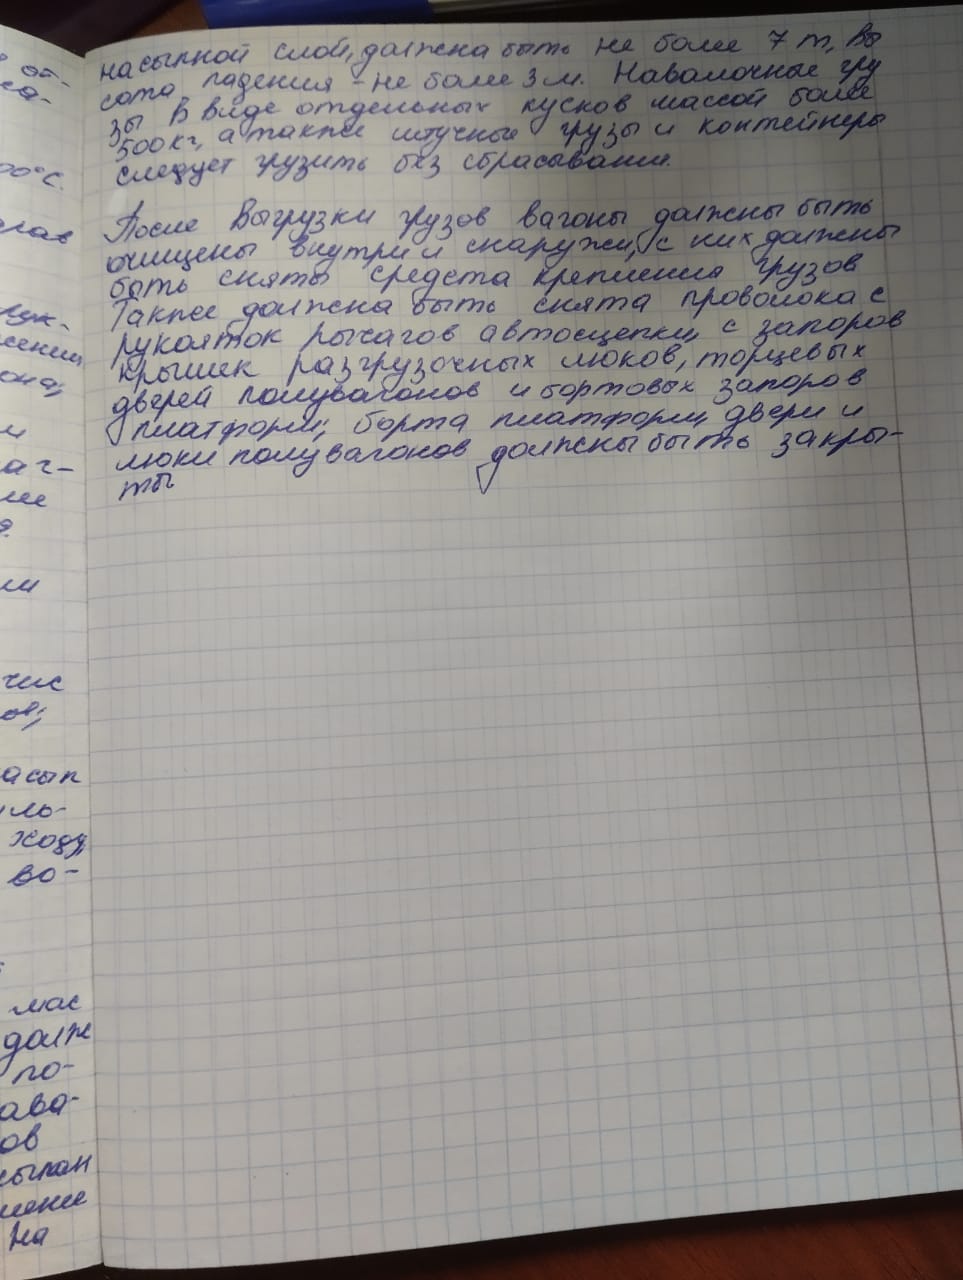 насыпной слой, должна быть не более 7 т, вы
сота падения - не более 3 м. Навалочные гру
зы в виде отдельных кусков массой более
500 кг, а также штучные грузы и контейнеры
следует грузить без сбрасывания.
После выгрузки грузов вагоны должны быть
очищены внутри и снаружи, с них должны
быть сняты средста крепления грузов
Также должна быть снята проволока с
рукояток рычагов автосцепки, с запоров
крышек разгрузочных люков, торцевых
дверей полувагонов и бортовых запоров
платформ; борта платформ, двери и
люки полувагонов должны быть закры-
ты
00°С.
чис
ов;
асып
ль-
ходу,
во-
мас
долж
по-
ава-
ов
на